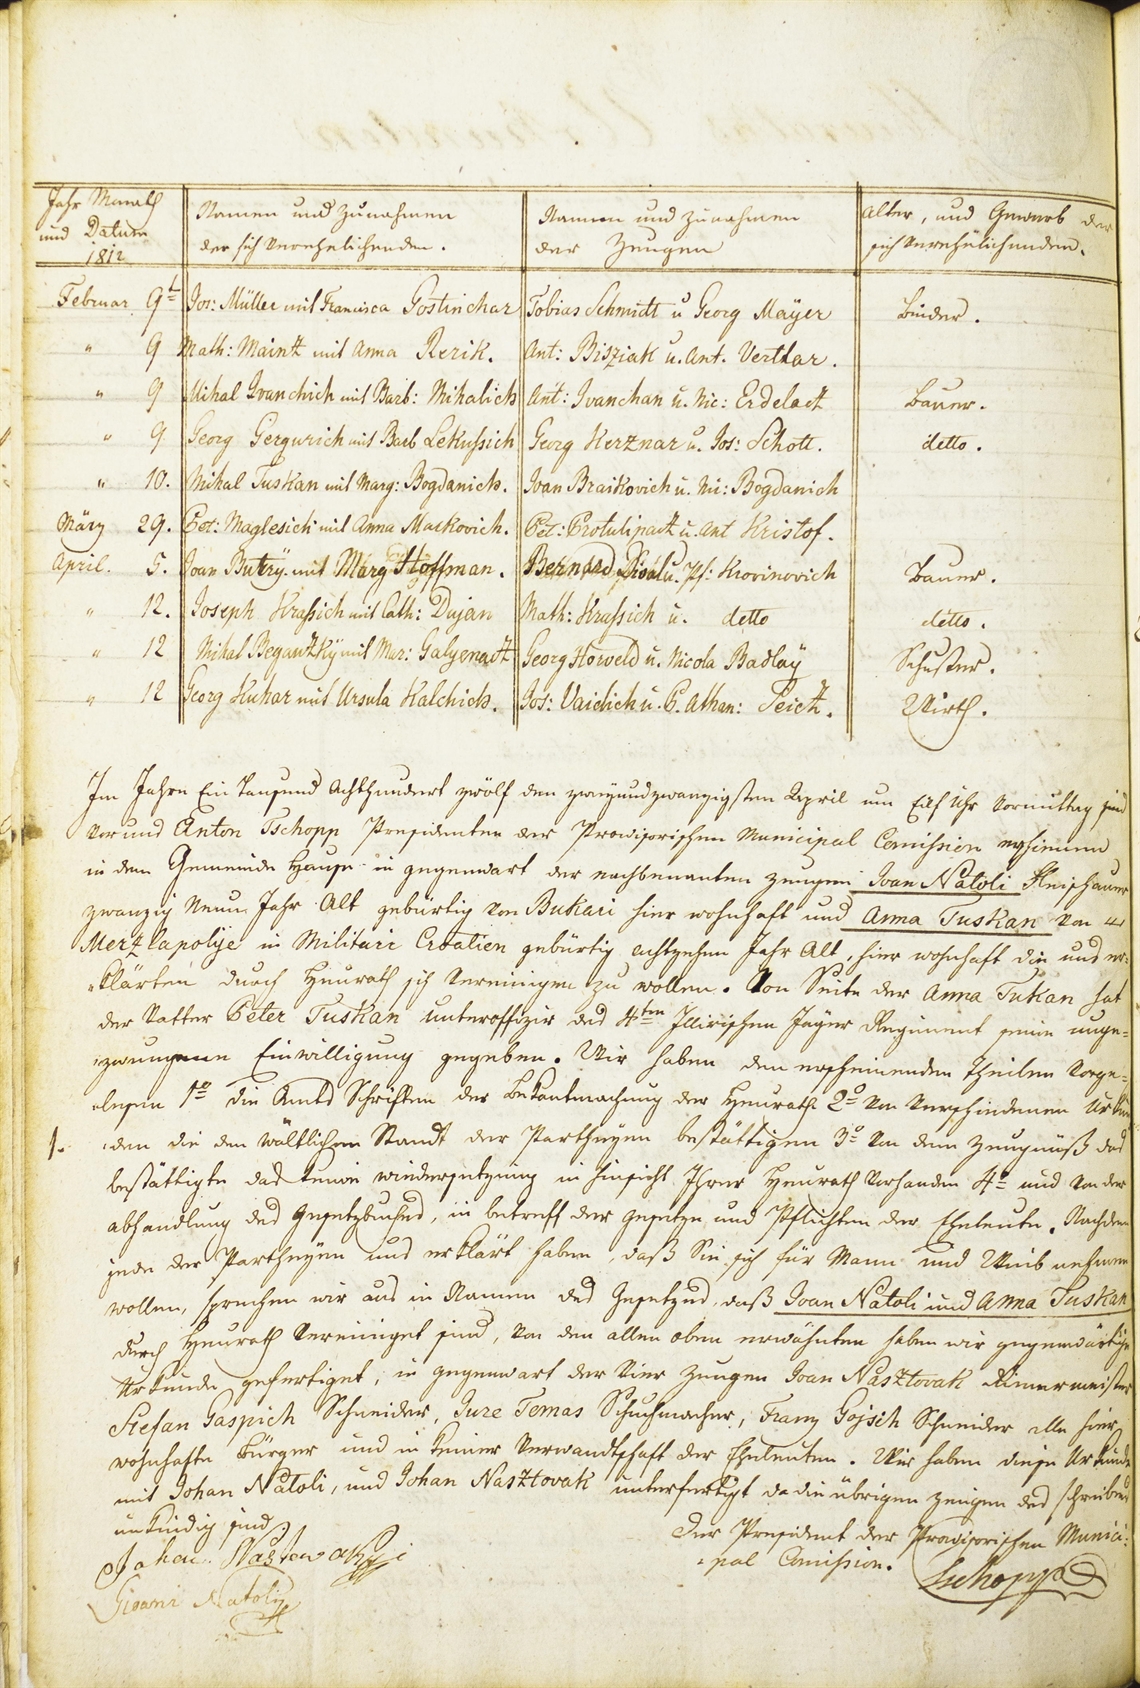 Jahr Monath
und Datum
1812
Namen und Zunahmen
der sich Verehelichenden.
Namen und Zunahmen
der Zeugen
Alter, und Gewerb der
sich Verehelichenden.
Februar 9t Jos: Müller mit Francisca Gostinchar Tobias Schmidt u Georg Mayer Binder.
" 9 Math: Maintz mit Anna Rerik. Ant: Bisziak u. Ant. Verthar.
" 9 Mihal Ivanchich mit Barb: Mihalich Ant: Ivanchan u. Nic: Erdelatz Bauer.
" 9 Georg Gergurich mit Barb Lekussich Georg Kerznar u. Jos: Schott. detto.
" 10. Mihal Tuskan mit Marg: Bogdanich. Ivan Braikovich u. Ni: Bogdanich
März 29. Pet: Maglesich mit Anna Markovich. Pet: Protulipatz u. Ant Kristof.
April. 5. Joan Butry mit Marg Hoffman. Bernard u. Krovinovich Bauer.
" 12. Joseph Krassich mit Cath: Dujan Math: Krassich u. detto detto.
" 12 Mihal mit Mar: Galyenatz Georg Horveld u. Nicola Badlay Schuster.
" 12 Georg Kuhar mit Ursula Kalchich. Jos: Vaidich u. P. Athan: Peich. Wirth.
Im Jahre Ein Tausend Achthundert zwölf den zweyundzwanzigsten April um Eilf Uhr Vormittag sind
Vor uns Anton Tschopp Presidenten der Provisorischen Municipal Comission erschienen
in dem Gemeinde Hause in gegenwart der nachbenanten Zeugen Joan Natoli Fleischauer
zwanzig Neun Jahr Alt gebürtig von Bukari hier wohnhaft und Anna Tuskan von
Merzlapolije in Militair Croatien gebürtig achtzehen Jahr Alt, hier wohnhaft die uns er:
klärten durch Heurath sich Vereinigen zu wollen. Von Seite der Anna Tukan hat
der Vatter Peter Tuskan unteroffizir des 4ten Illirischen Jäger Regiment seine unge=
zwungene Einwilligung gegeben. Wir haben den erscheinenden Theilen Vorge=
lesen 1o die Amts Schriften der Bekantmachung der Heurath 2o Von Verschiedenen Urkun
1. den die den Wältlichen Standt der Partheyen bestättigen 3o Von dem Zeugnüß das
bestättigte das keine wiedersetzung in hinsicht Ihrer Heurath Vorhanden 4o und Von der
abhandlung des Gesetzbuches, in betreff der gesetze und Pflichten der Eheleute. Nachdem
jede der Partheyen uns erklärt haben, daß Sie sich für Mann und Weib nehmen
wollen, sprechen wir aus in Namen des Gesetzes, daß Joan Natoli und Anna Tuskan
durch Heurath Vereiniget sind, Von den allen oben erwähnten haben wir gegenwärtige
Urkunde gefertiget, in gegenwart der Vier Zeugen Joan Nasztovak Riemermeister
Stefan Gaspich Schneider, Jure Temas Schuchmacher, Franz Gojsich Schneider alle hier
wohnhafte Bürger und in keiner Verwandtschaft der Eheleuten. Wir haben diese Urkunde
mit Johan Natoli, und Johan Nasztovak unterfertigt da die übrigen Zeugen des schreibens
unkündig sind.
Der President der Provisorischen Munici:
pal Comission.
Johan
Tschopp
Giovani Natoli